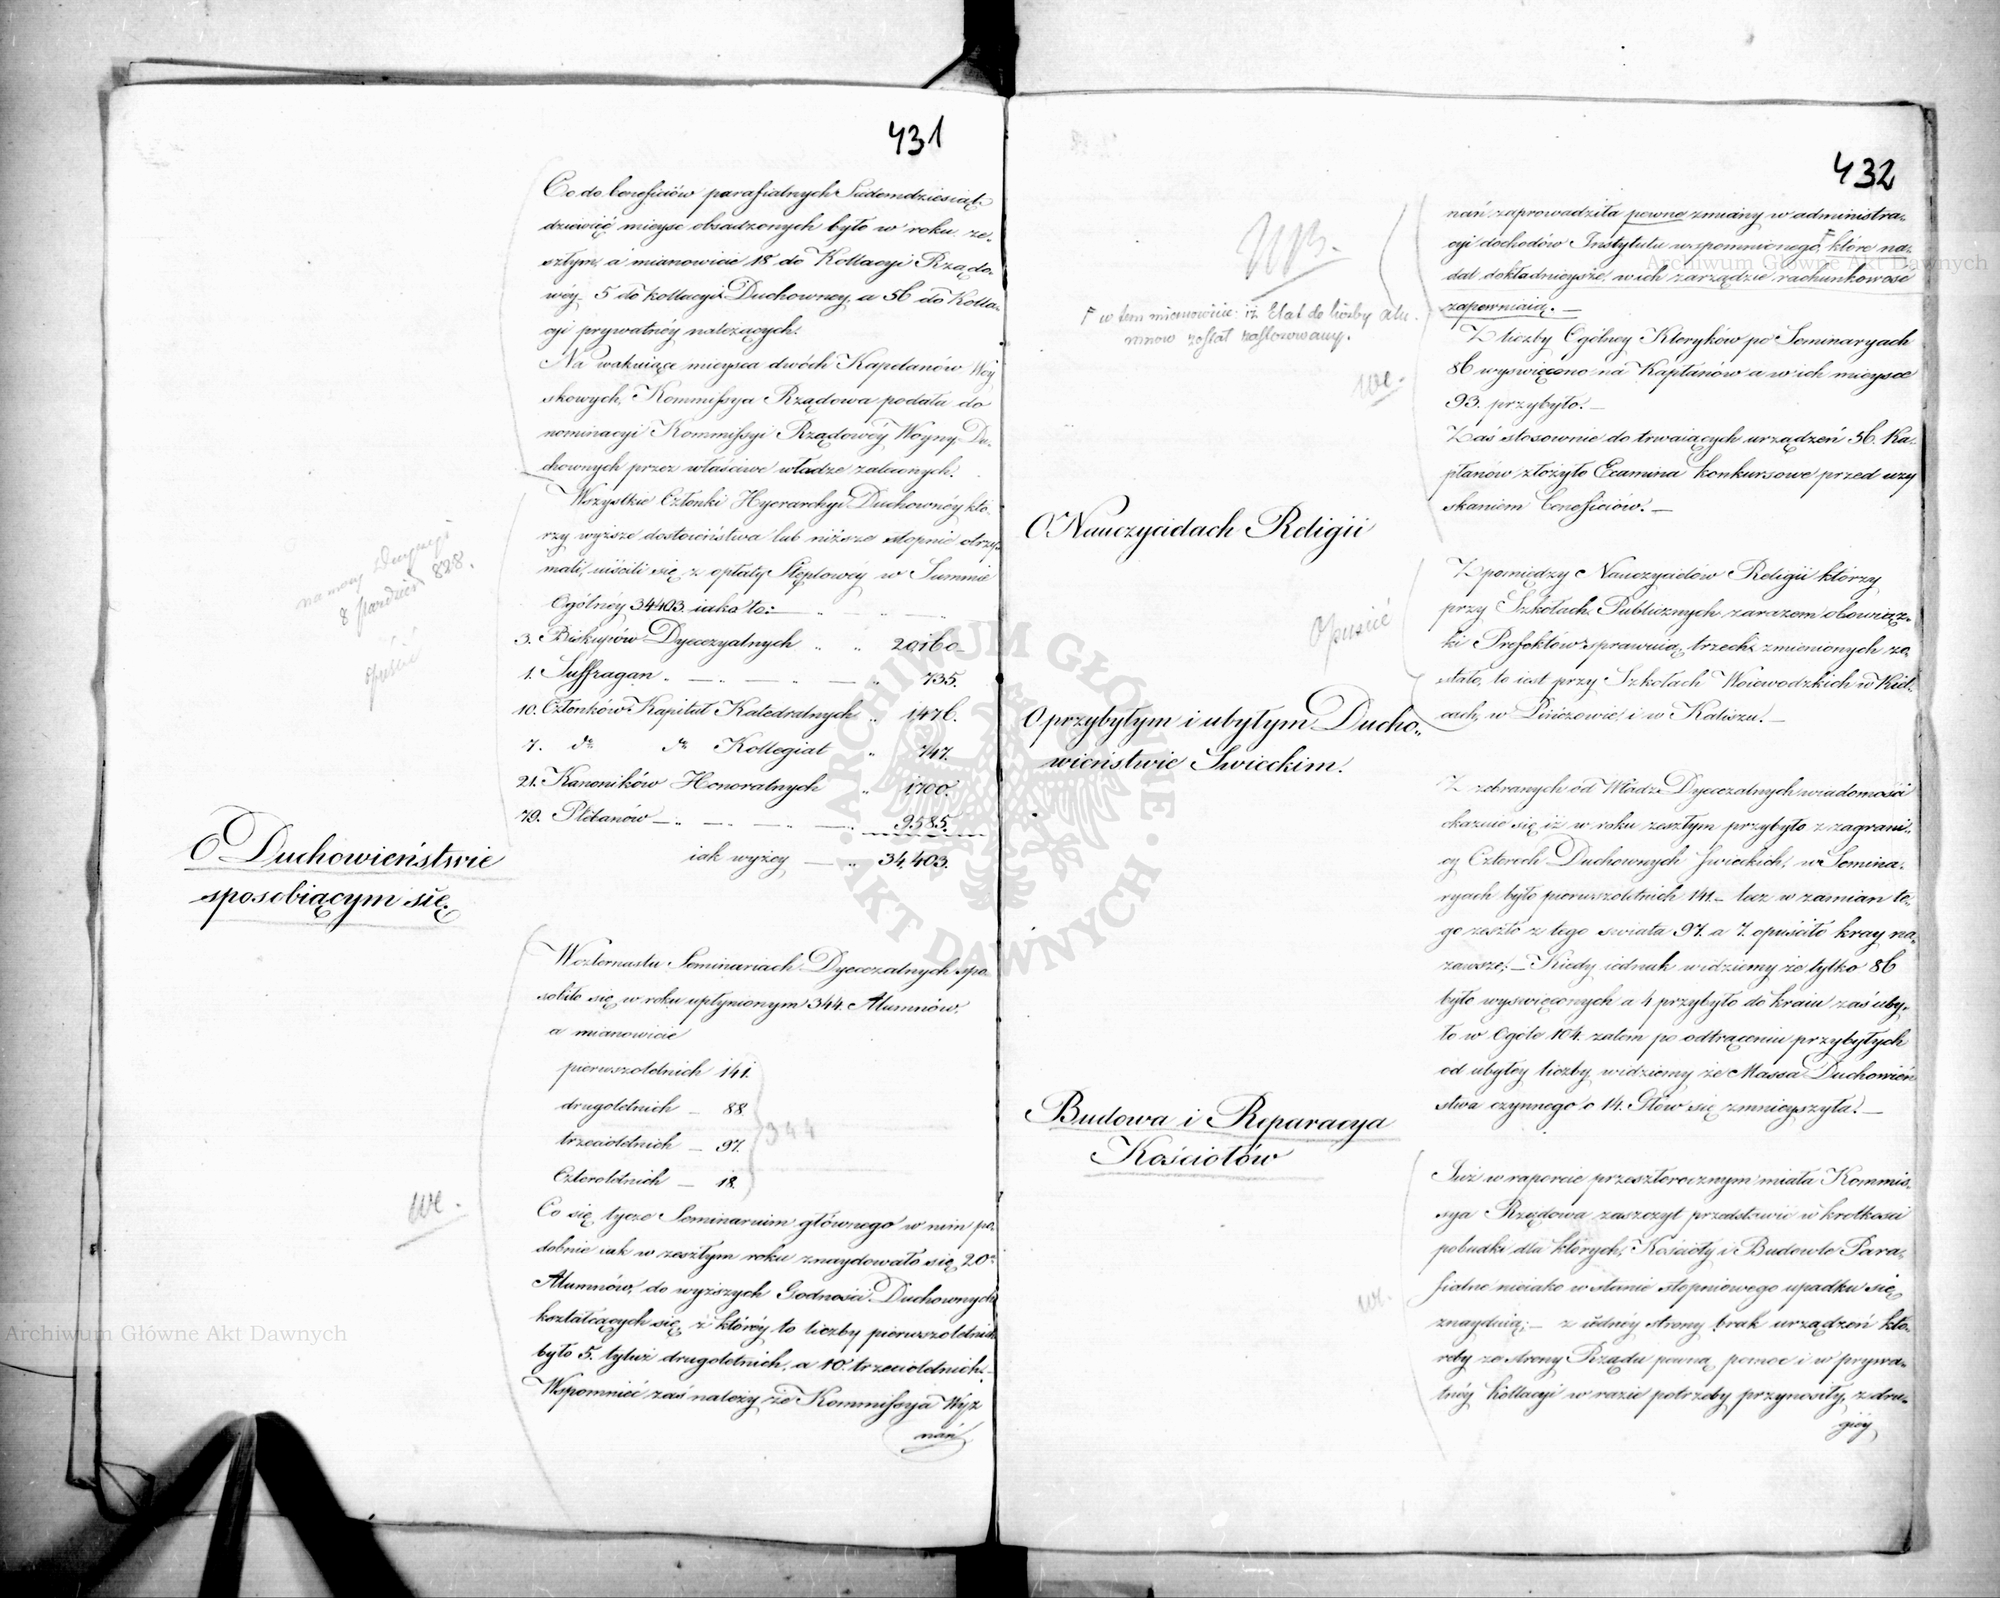 431
Co do beneficiów parafialnych Siedemdziesiąt
dziewięć mieysc obsadzonych było w roku ze-
szłym, a mianowicie 18 do Kollacyi Rządo-
wéy 5 do kollacyi Duchowney, a 56 do Kolla-
cyi prywatnéy należących.
Na wakuiące mieysca dwóch Kapelanów Woy
skowych, Kommissya Rządowa podała do
nominacyi Kommissyi Rządowéy Woyny Du-
chownych przez właściwe władze zaleconych.
Wszystkie Członki Hyerarchyi Duchownéy któ-
rzy wyższe dostoieństwa lub niższe stopnie otrzy-
mali, uiścili się z opłaty Stęplowéy w Summie
Ogólnéy 34403. iako to:
3. Biskupów Dyecezyalnych " " 20,160
1. Suffragan " — " — " 735.
10. Członków Kapituł Katedralnych " 1476.
7. dto dto Kollegiat " 747.
21. Kanoników Honoralnych " 1700.
79. Plebanów — " — " — 9.585.
iak wyżey — " 34,403.
na mocy Decyzyi
8 Pazdzier 828.
opuścić
O Duchowieństwie
sposobiącym się.
W czternastu Seminariach Dyecezalnych spo-
sobiło się w roku upłynionym 344. Alumnów,
a mianowicie
pierwszoletnich 141.
drugoletnich — 88.
trzecioletnich — 97.
Czteroletnich — 18.
344
we.
Co się tycze Seminarium głównego w nim po-
dobnie iak w zeszłym roku znaydowało się 20
Alumnów, do wyższych Godności Duchownych
kształcących się, z któréy to liczby pierwszoletnich
było 5. tyluż drugoletnich, a 10. trzecioletnich.
Wspomnieć zaś należy że Kommissya Wyz
nań
432
nań zaprowadziła pewne zmiany w administra-
cyi dochodów Instytutu wspomnionego, F które na-
dal dokładnieysze w ich zarządzie rachunkowość
zapewniaią. —
NB.
F w tem mianowicie: iż Etat do liczby alu-
mnow został zastosowany.
we.
Z liczby Ogólney Kleryków po Seminaryach
86 wyswięcono na Kapłanów a w ich mieysce
93. przybyło. —
Zaś stosownie do trwaiących urządzeń 56. Ka-
płanów złożyło Examina konkursowe przed uzy
skaniem beneficiów. —
O Nauczycielach Religii
Z pomiędzy Nauczycielów Religii którzy
przy Szkołach Publicznych zarazem obowiąz-
ki Prefektów sprawuią, trzech zmienionych zo-
stało, to iest przy Szkołach Woiewodzkich w Kiel-
cach, w Pińczowie, i w Kaliszu. —
Opuścić
O przybyłym i ubyłym Ducho-
wieństwie Swieckim.
Z zebranych od Władz Dyecezalnych wiadomości
okazuie się iż w roku zeszłym przybyło z zagrani-
cy Czterech Duchownych Swieckich, w Semina-
ryach było pierwszoletnich 141 — lecz w zamian te-
go zeszło z tego swiata 97. a 7. opuściło kray na
zawsze; — Kiedy iednak widziemy że tylko 86
było wyswięconych a 4 przybyło do kraiu zaś uby-
ło w Ogóle 104. zatem po odtrąceniu przybyłych
od ubyłey liczby widziemy że Massa Duchowień
stwa czynnego o 14. Głów się zmnieyszyła. —
Budowa i Reparacya
Kościołów
Już w raporcie przeszłorocznym miała Kommis-
sya Rządowa zaszczyt przedstawić w krotkosci
pobudki dla których, Kościoły i Budowle Para-
fialne nieiako w stanie stopniowego upadku się
znayduią; — z iednéy strony brak urządzeń któ-
reby ze strony Rządu pewną pomoc i w prywa-
tnéy kollacyi w razie potrzeby przynosiły, z dru-
giey
we.
Archiwum Główne Akt Dawnych
Archiwum Główne Akt Dawnych
ARCHIWUM GŁÓWNE · AKT DAWNYCH ·